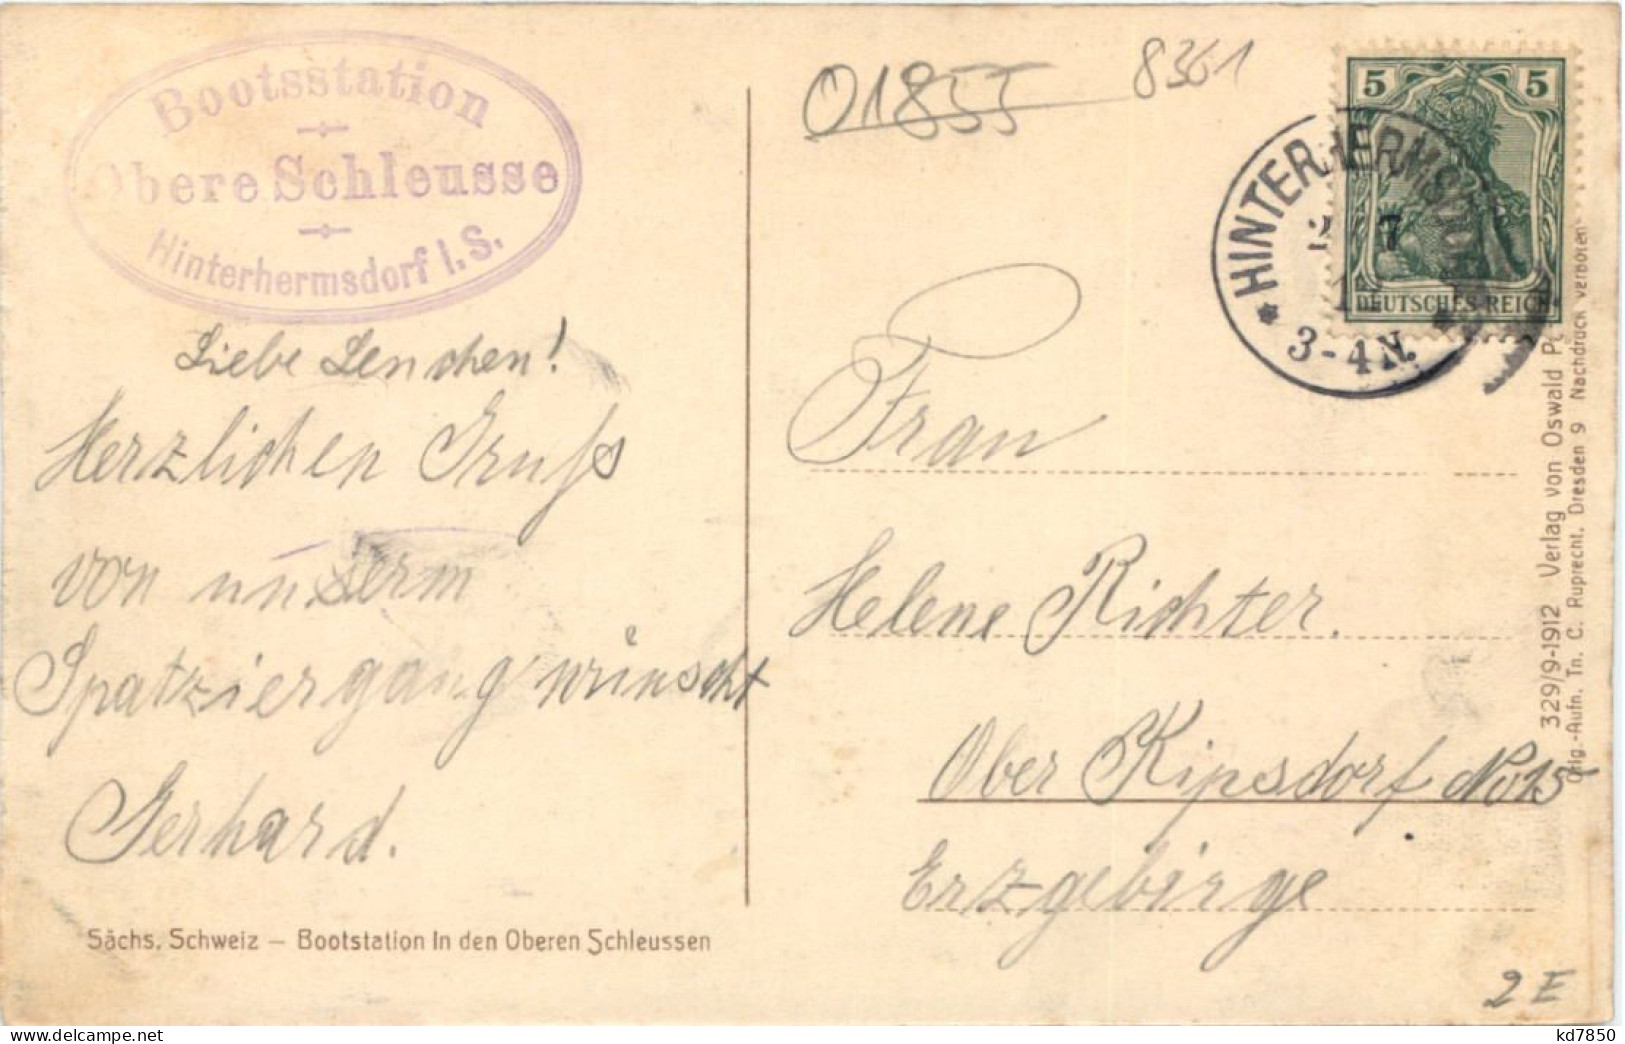 Bootsstation
Obere Schleusse
Hinterhermsdorf i. S.
01855
8361
5 5
DEUTSCHES REICH
* HINTERHERMSDORF *
3-4 N.
Liebe Lenchen!
Herzlichen Gruß
von unserm
Spatziergang wünscht
Gerhard.
Frau
Helene Richter.
Ober Kipsdorf No 15
Erzgebirge
Sächs. Schweiz – Bootstation In den Oberen Schleussen
329/9-1912 Verlag von Oswald
Orig.-Aufn. Tn. C. Ruprecht. Dresden 9 Nachdruck verboten
2 E
kd7850